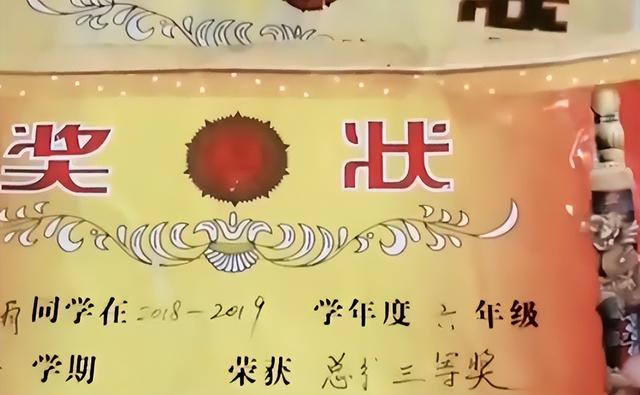 状
奖 状
同学在 2018-2019 学年度 六年级
学期 荣获 总分三等奖